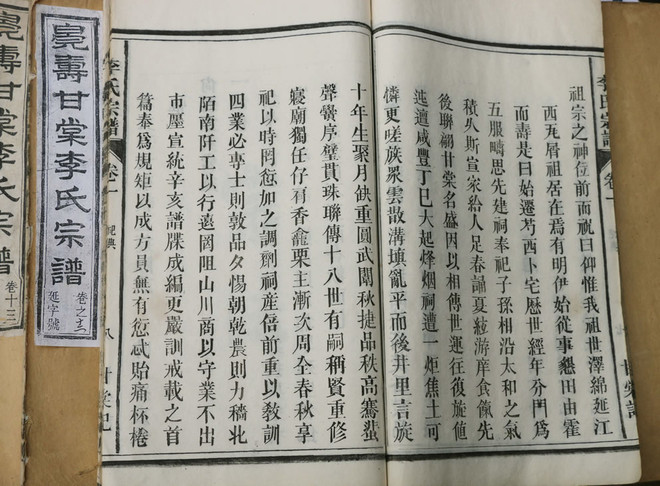 李氏宗譜
卷一
祖宗之神位前而祝曰仰惟我祖世澤綿延江
西瓦屑祖居在焉有明伊始從事懇田由霍
而壽是曰始遷芍西卜宅歷世經年分閏為
五服疇思先建祠奉祀子孫相沿太和之氣
積乆斯宣家給人足春誦夏絃游庠食餼先
後聯綿甘棠名盛因以相傳世運往復旋值
迍邅咸豐丁巳大起烽烟祠遭一炬焦土可
憐更嗟族衆雲散溝塡亂平而後井里言旋
十年生聚月缺重圓武闈秋捷品秩高騫蜚
聲黌序璧貫珠聯傳十八世有嗣稱賢重修
寢廟獨任仔肩香龕栗主漸次周全春秋享
祀以時罔愆加之調劑祠產倍前重以敎訓
四業必專士則敦品夕惕朝乾農則力穡北
陌南阡工以行遠罔阻山川商以守業不出
市廛宣統辛亥譜牒成編更嚴訓戒載之首
篇奉爲規矩以成方員無有愆忒貽痛杯棬
李氏宗譜
卷一
祀典
八
壽甘棠李氏宗譜
延字號
壽甘棠李氏宗譜
卷十三